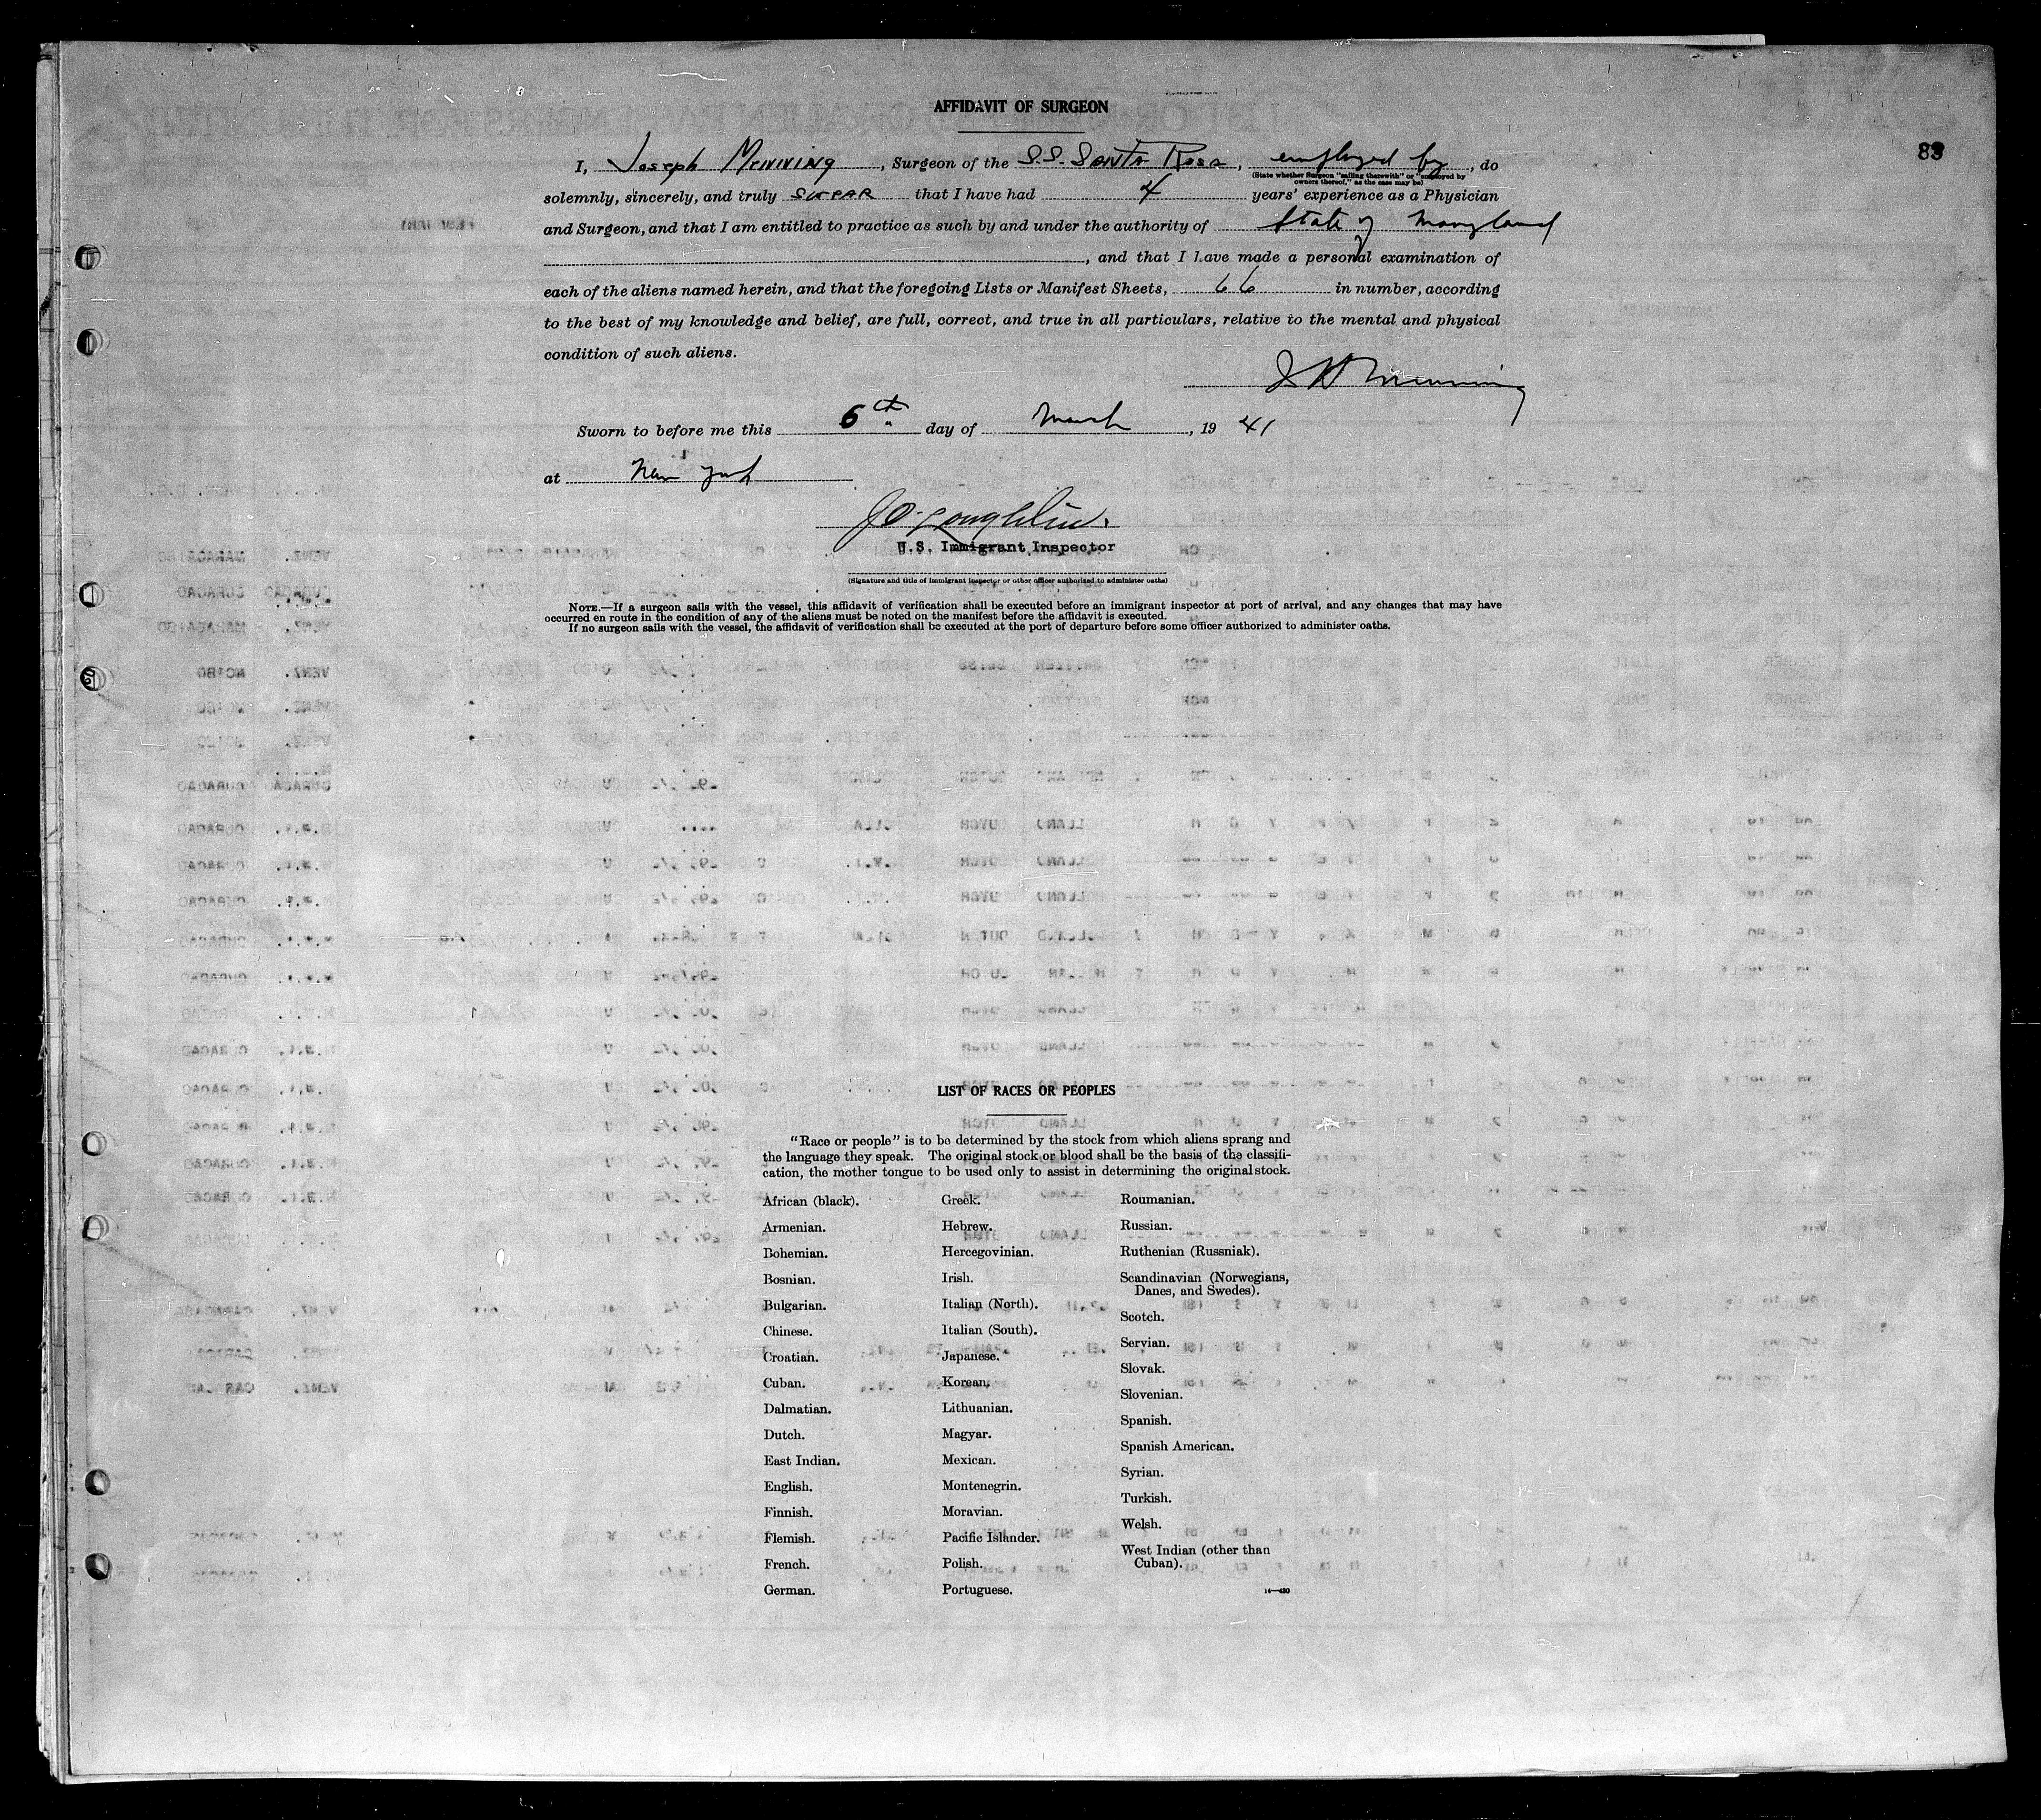 AFFIDAVIT OF SURGEON
83
I, Joseph Menning, Surgeon of the S.S. Santa Rosa, employed by, do
(State whether Surgeon "sailing therewith" or "employed by
owners thereof," as the case may be)
solemnly, sincerely, and truly swear that I have had 4 years' experience as a Physician
and Surgeon, and that I am entitled to practice as such by and under the authority of State of Maryland
, and that I have made a personal examination of
each of the aliens named herein, and that the foregoing Lists or Manifest Sheets, 66 in number, according
to the best of my knowledge and belief, are full, correct, and true in all particulars, relative to the mental and physical
condition of such aliens.
J H Menning
Sworn to before me this 6th day of March, 19 41
at New York
U.S. Immigrant Inspector
(Signature and title of immigrant inspector or other officer authorized to administer oaths)
NOTE.—If a surgeon sails with the vessel, this affidavit of verification shall be executed before an immigrant inspector at port of arrival, and any changes that may have
occurred en route in the condition of any of the aliens must be noted on the manifest before the affidavit is executed.
If no surgeon sails with the vessel, the affidavit of verification shall be executed at the port of departure before some officer authorized to administer oaths.
LIST OF RACES OR PEOPLES
"Race or people" is to be determined by the stock from which aliens sprang and
the language they speak. The original stock or blood shall be the basis of the classifi-
cation, the mother tongue to be used only to assist in determining the original stock.
African (black).
Armenian.
Bohemian.
Bosnian.
Bulgarian.
Chinese.
Croatian.
Cuban.
Dalmatian.
Dutch.
East Indian.
English.
Finnish.
Flemish.
French.
German.
Greek.
Hebrew.
Hercegovinian.
Irish.
Italian (North).
Italian (South).
Japanese.
Korean.
Lithuanian.
Magyar.
Mexican.
Montenegrin.
Moravian.
Pacific Islander.
Polish.
Portuguese.
Roumanian.
Russian.
Ruthenian (Russniak).
Scandinavian (Norwegians,
Danes, and Swedes).
Scotch.
Servian.
Slovak.
Slovenian.
Spanish.
Spanish American.
Syrian.
Turkish.
Welsh.
West Indian (other than
Cuban).